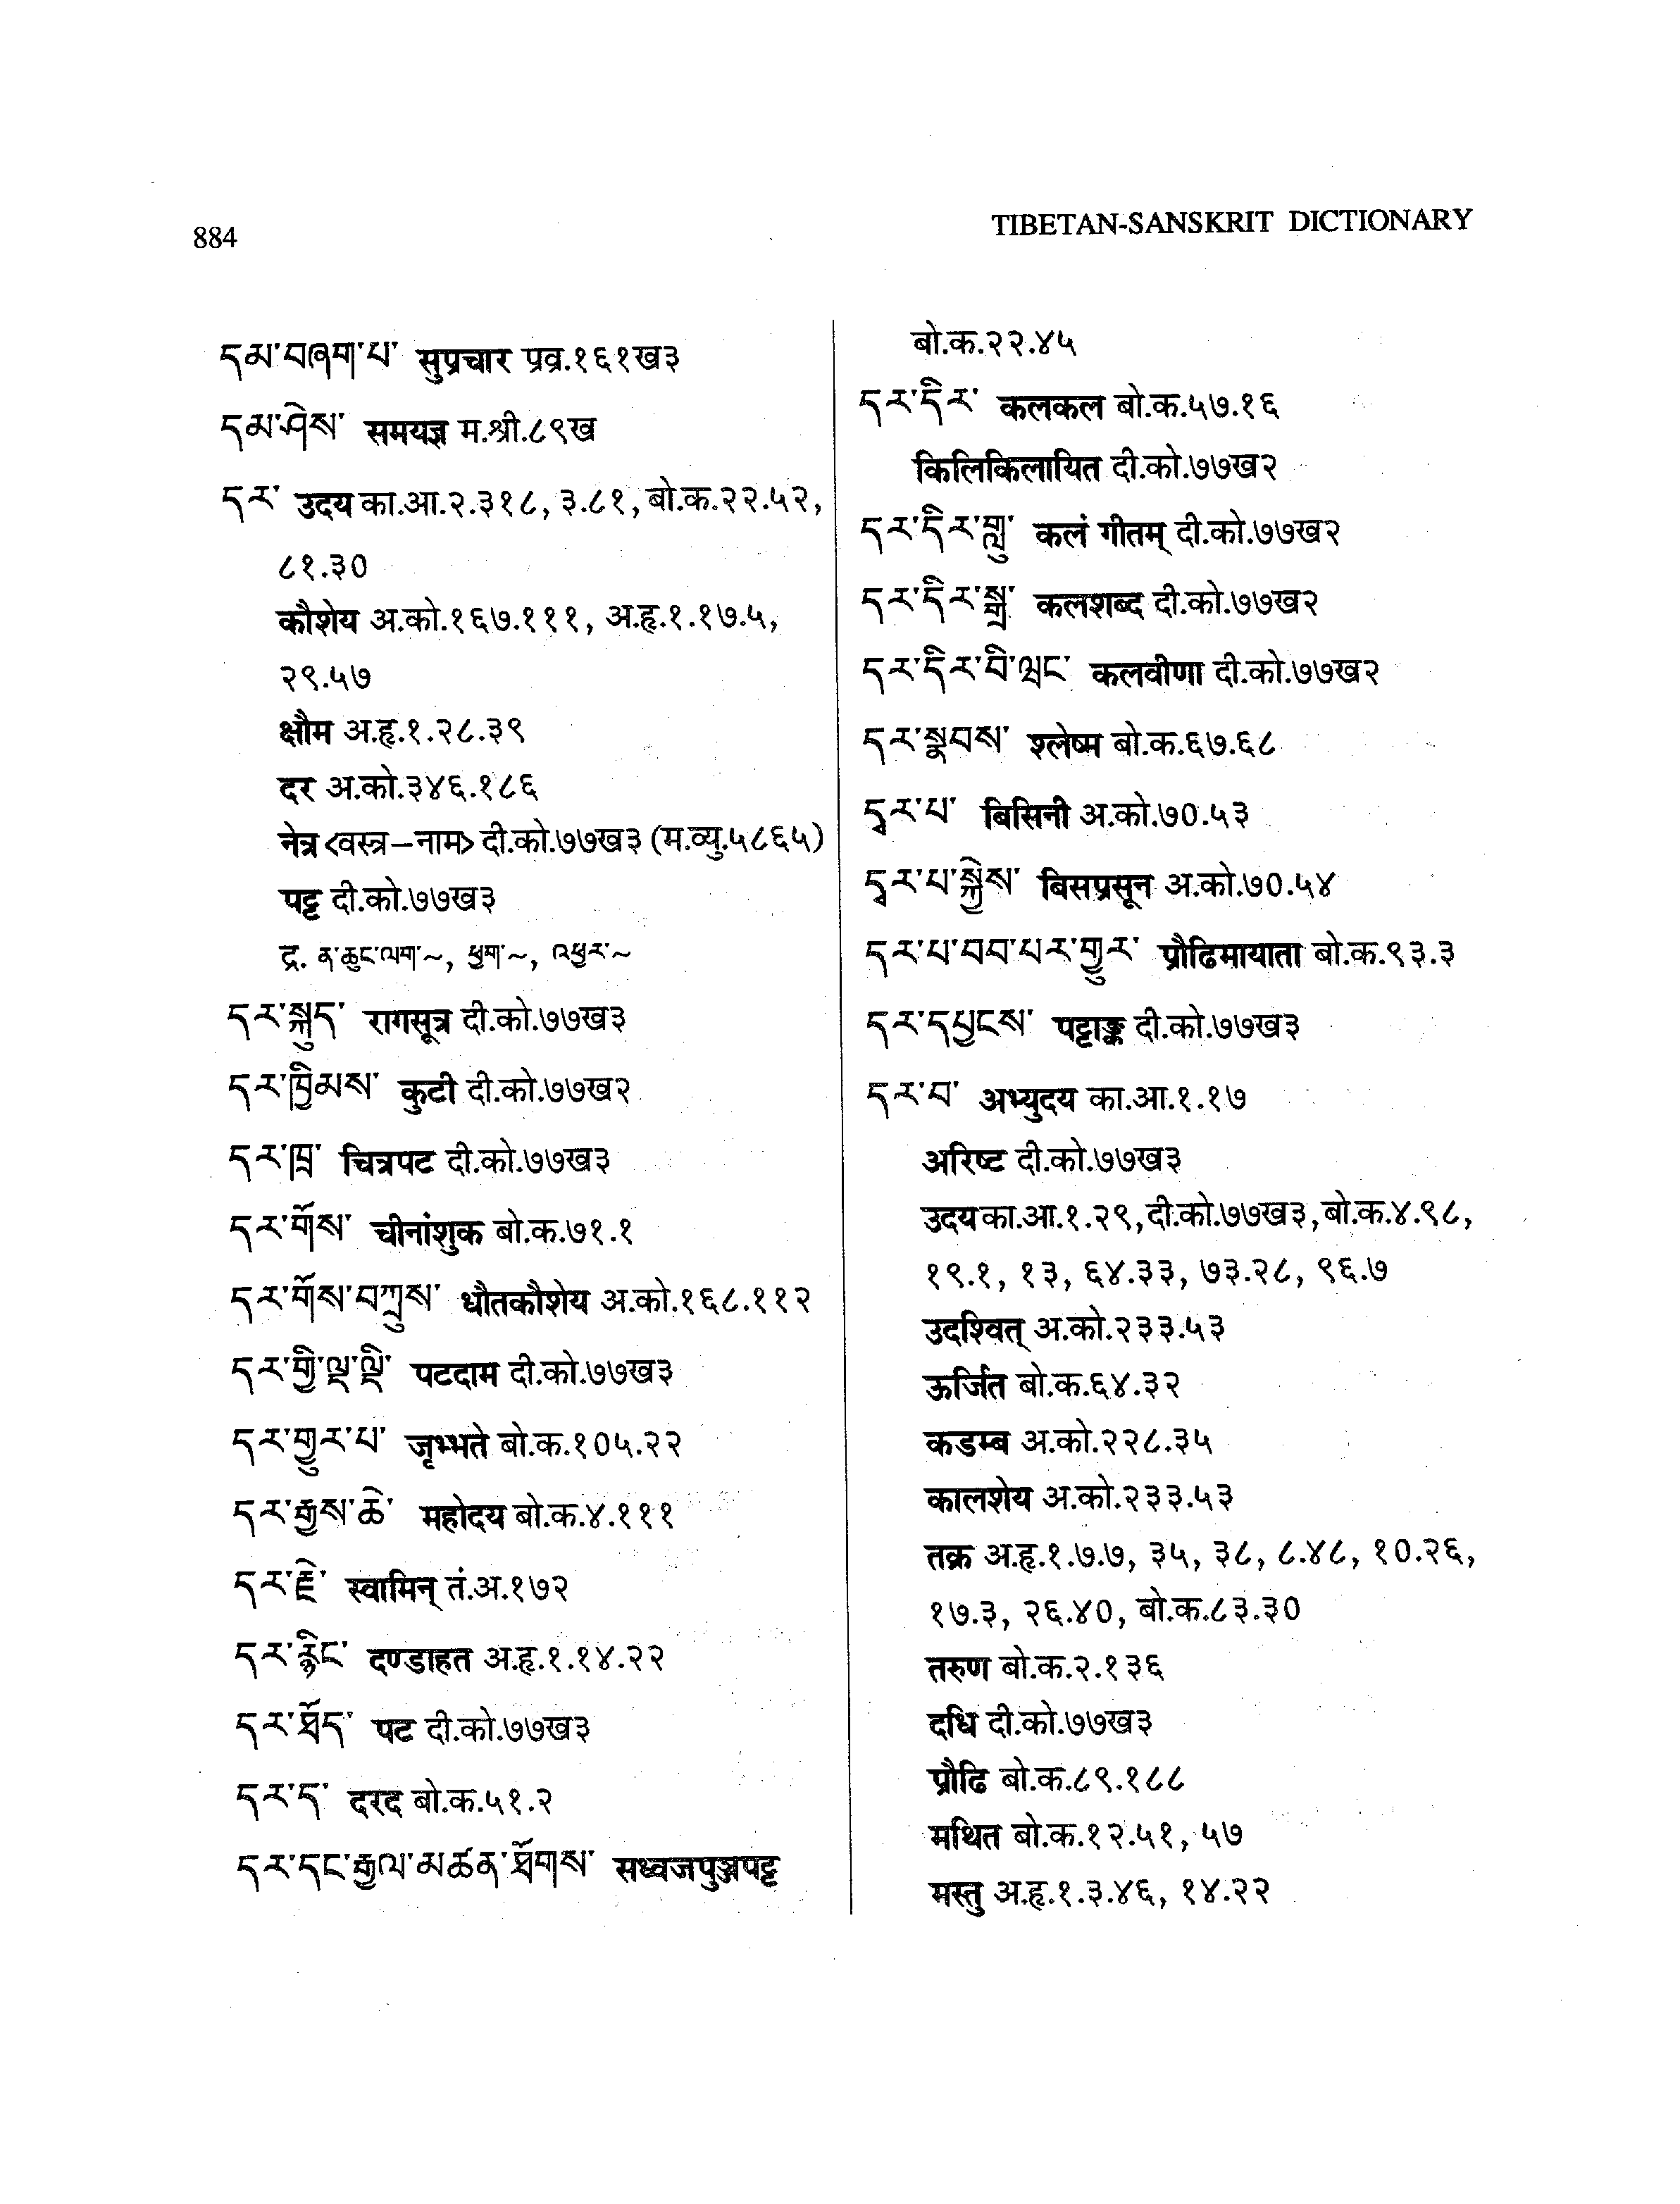 884
TIBETAN-SANSKRIT DICTIONARY
དམ་བཞག་པ་ सुप्रचार प्रव्र.१६१ख३
དམ་ཤེས་ समयज्ञ म.श्री.८९ख
དར་ उदय का.आ.२.३१८, ३.८१, बो.क.२२.५२,
८१.३०
कौशेय अ.को.१६७.१११, अ.हृ.१.१७.५,
२९.५७
क्षौम अ.हृ.१.२८.३९
दर अ.को.३४६.१८६
नेत्र <वस्त्र–नाम> दी.को.७७ख३ (म.व्यु.५८६५)
पट्ट दी.को.७७ख३
द्र. ན་ཆུང་ལག་~, ཕྱག་~, འཕྱར་~
དར་སྐུད་ रागसूत्र दी.को.७७ख३
དར་ཁྲིམས་ कुटी दी.को.७७ख२
དར་ཁྲ་ चित्रपट दी.को.७७ख३
དར་གོས་ चीनांशुक बो.क.७१.१
དར་གོས་བཀྲུས་ धौतकौशेय अ.को.१६८.११२
དར་གྱི་ལྡ་ལྡི་ पटदाम दी.को.७७ख३
དར་གྱུར་པ་ जृम्भते बो.क.१०५.२२
དར་རྒྱས་ཆེ་ महोदय बो.क.४.१११
དར་རྗེ་ स्वामिन् तं.अ.१७२
དར་རྙིང་ दण्डाहत अ.हृ.१.१४.२२
དར་ཐོད་ पट दी.को.७७ख३
དར་ད་ दरद बो.क.५१.२
དར་དང་རྒྱལ་མཚན་ཐོགས་ सध्वजपुञ्जपट्ट
बो.क.२२.४५
དར་དིར་ कलकल बो.क.५७.१६
किलिकिलायित दी.को.७७ख२
དར་དིར་གླུ་ कलं गीतम् दी.को.७७ख२
དར་དིར་སྒྲ་ कलशब्द दी.को.७७ख२
དར་དིར་པི་ཝང་ कलवीणा दी.को.७७ख२
དར་སྣབས་ श्लेष्म बो.क.६७.६८
དྭར་པ་ बिसिनी अ.को.७०.५३
དྭར་པ་སྐྱེས་ बिसप्रसून अ.को.७०.५४
དར་པ་བབ་པར་གྱུར་ प्रौढिमायाता बो.क.९३.३
དར་དཔྱངས་ पट्टाङ्क दी.को.७७ख३
དར་བ་ अभ्युदय का.आ.१.१७
अरिष्ट दी.को.७७ख३
उदय का.आ.१.२९, दी.को.७७ख३, बो.क.४.९८,
१९.१, १३, ६४.३३, ७३.२८, ९६.७
उदश्वित् अ.को.२३३.५३
ऊर्जित बो.क.६४.३२
कडम्ब अ.को.२२८.३५
कालशेय अ.को.२३३.५३
तक्र अ.हृ.१.७.७, ३५, ३८, ८.४८, १०.२६,
१७.३, २६.४०, बो.क.८३.३०
तरुण बो.क.२.१३६
दधि दी.को.७७ख३
प्रौढि बो.क.८९.१८८
मथित बो.क.१२.५१, ५७
मस्तु अ.हृ.१.३.४६, १४.२२